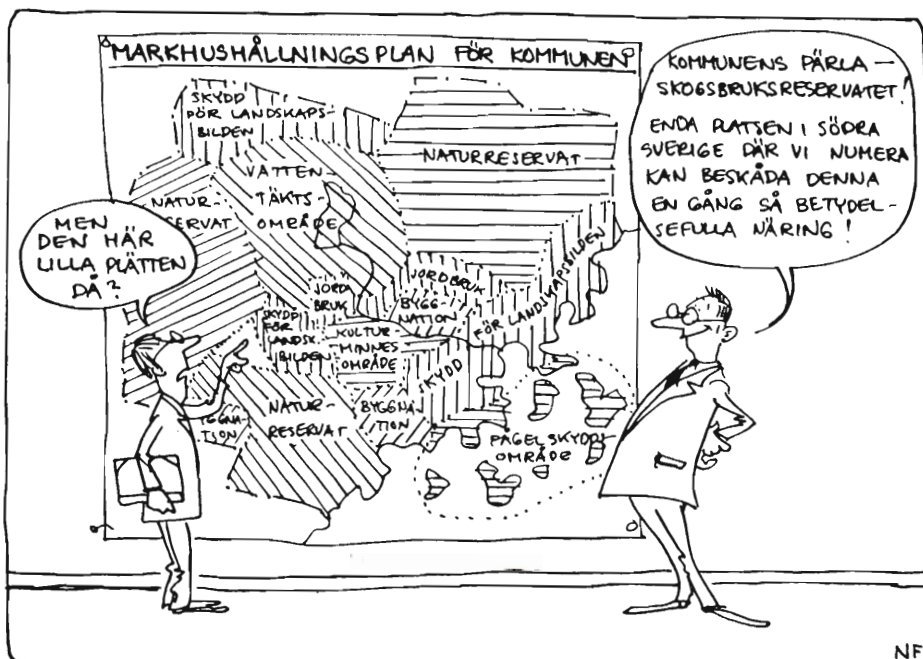 MARKHUSHÅLLNINGSPLAN FÖR KOMMUNEN
SKYDD
FÖR LANDSKAPS-
BILDEN
NATURRESERVAT
VATTEN-
TÄKTS-
OMRÅDE
NATUR-
RESERVAT
JORDBRUK
JORD
BRUK
BYGG-
NATION
SKYDD
FÖR
LANDSK.
BILDEN
KULTUR
MINNES
OMRÅDE
SKYDD FÖR LANDSKAPSBILDEN
NATUR-
RESERVAT
BYGGNA-
TION
YGGNA-
TION
FÅGELSKYDDS
OMRÅDE
MEN
DEN HÄR
LILLA PLÄTTEN
DÅ?
KOMMUNENS PÄRLA —
SKOGSBRUKSRESERVATET!
ENDA PLATSEN I SÖDRA
SVERIGE DÄR VI NUMERA
KAN BESKÅDA DENNA
EN GÅNG SÅ BETYDEL-
SEFULLA NÄRING!
NF